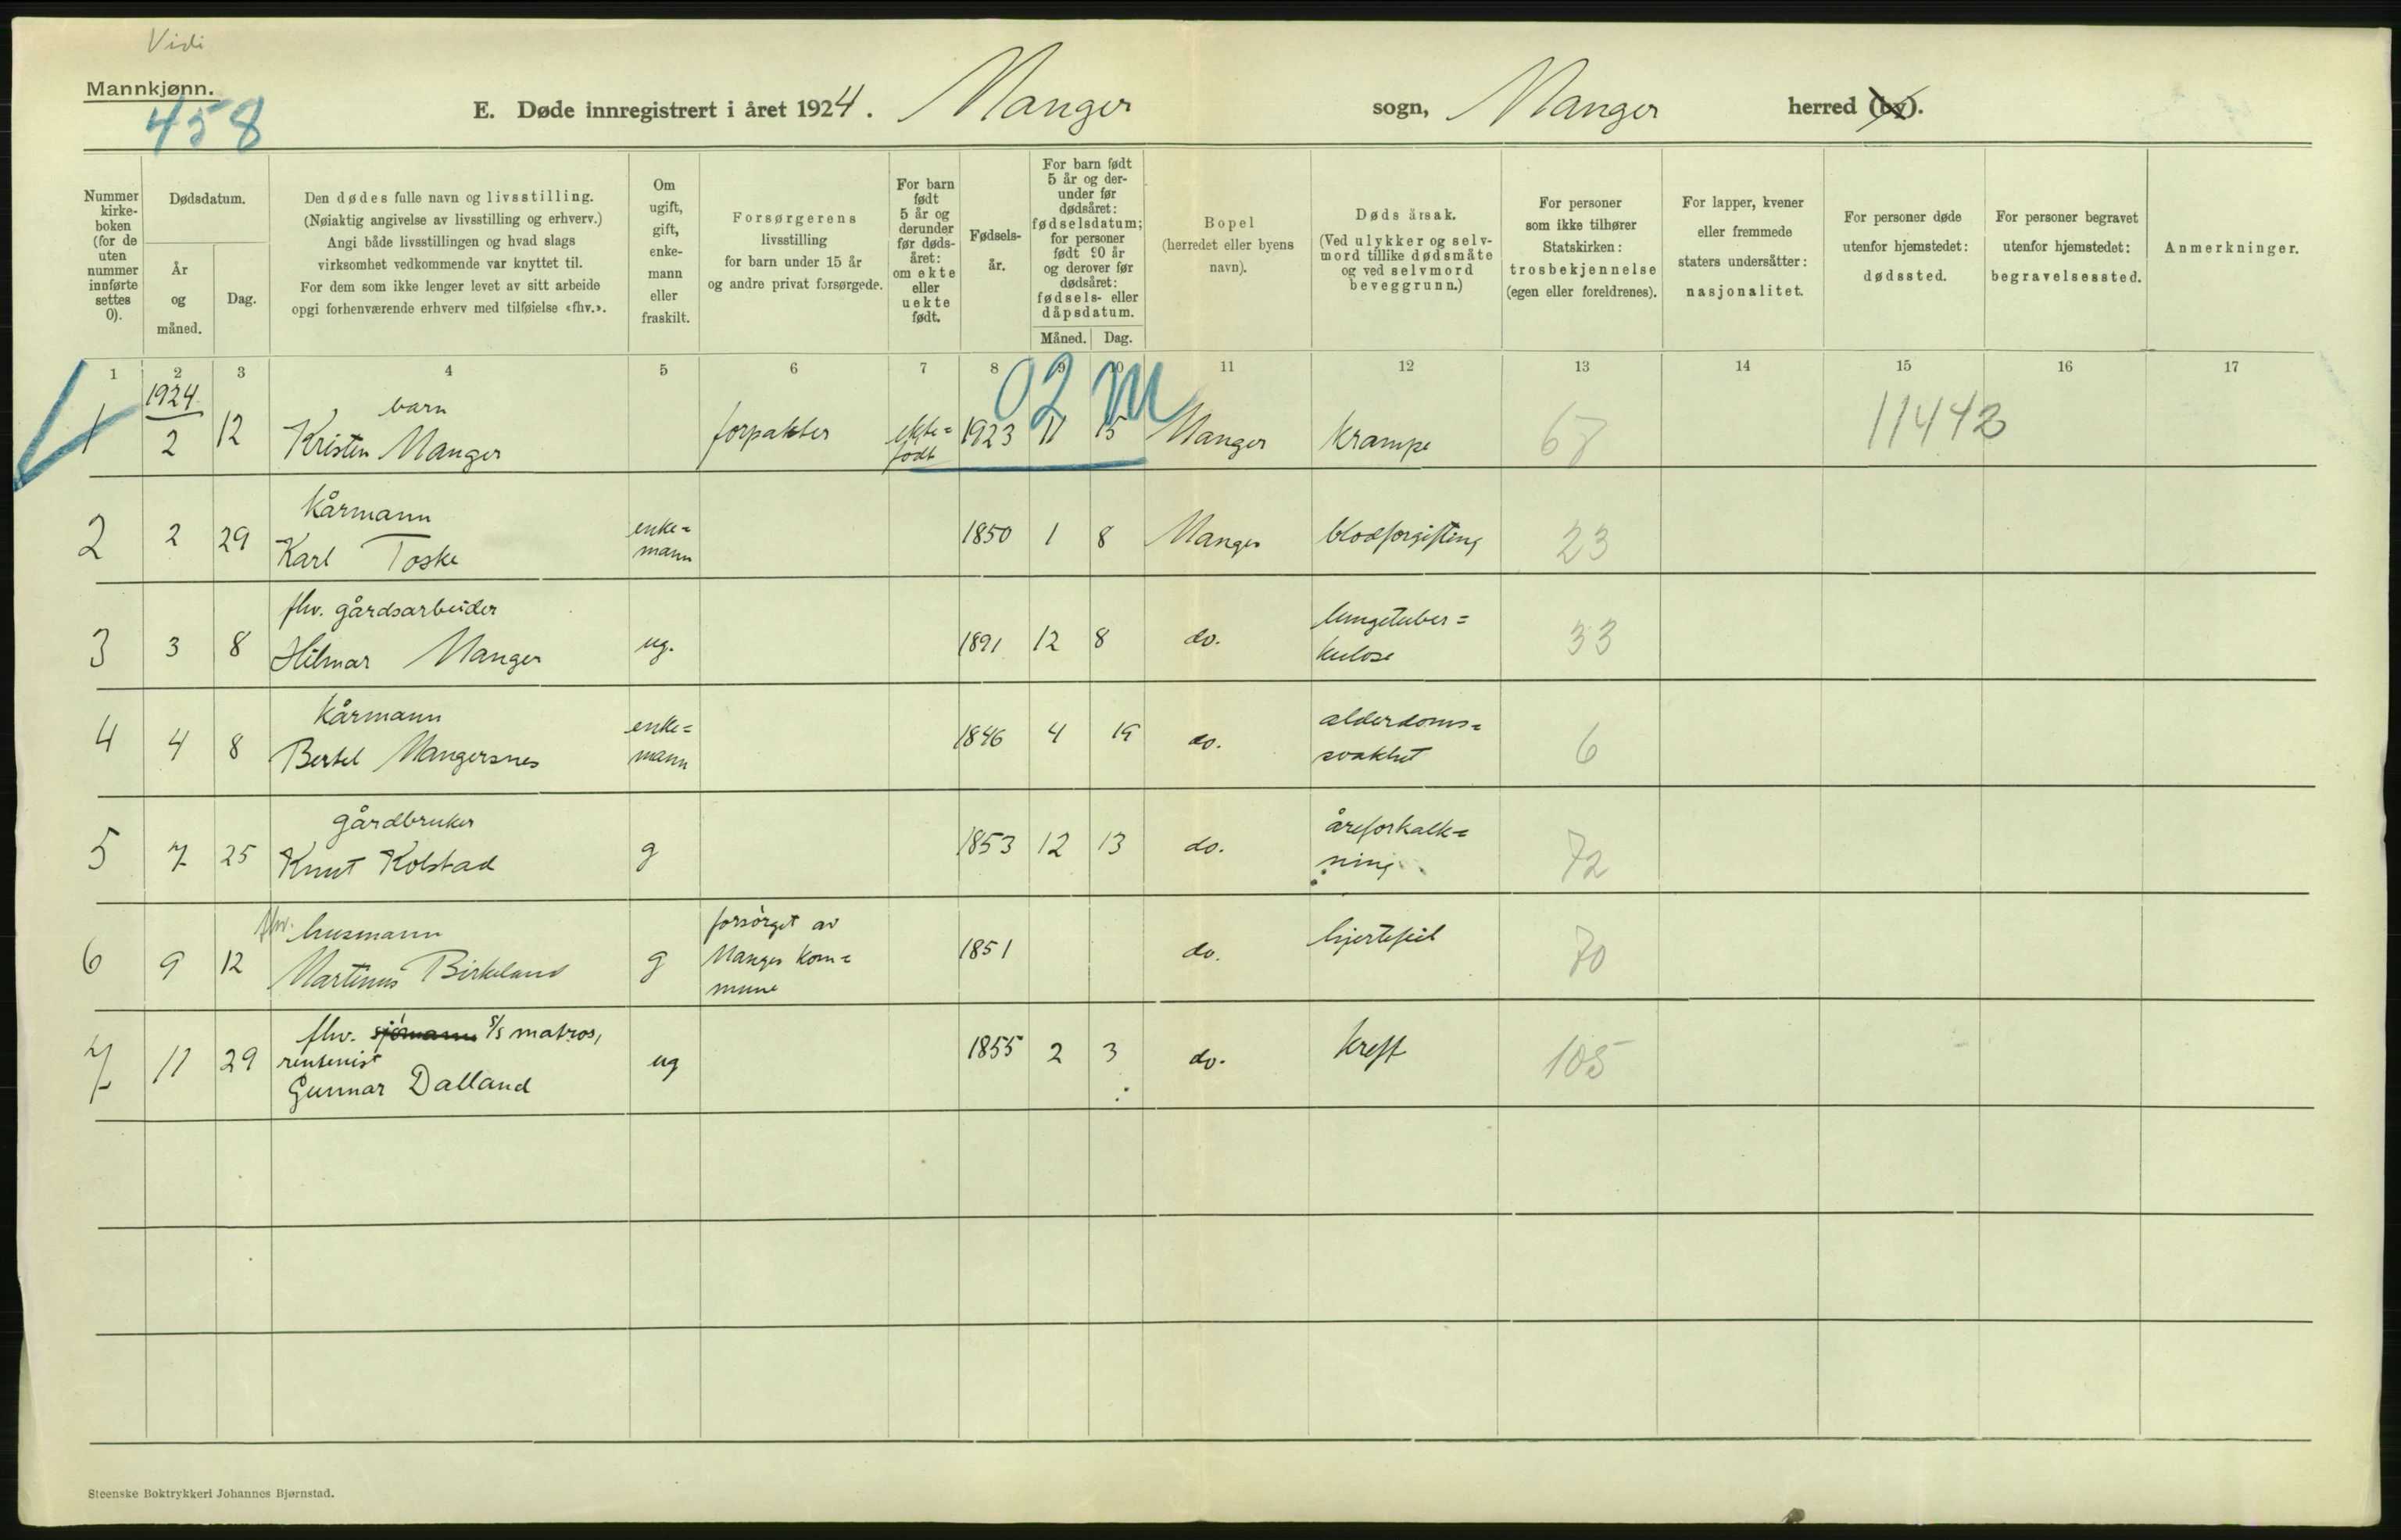 Vidi
Mannkjønn.
458
E. Døde innregistrert i året 1924. Manger sogn, Manger herred (by).
Nummer kirke- boken (for de uten nummer innførte settes 0).
Dødsdatum.
År og måned.
Dag.
Den dødes fulle navn og livsstilling.
(Nøiaktig angivelse av livsstilling og erhverv.)
Angi både livsstillingen og hvad slags
virksomhet vedkommende var knyttet til.
For dem som ikke lenger levet av sitt arbeide
opgi forhenværende erhverv med tilføielse «fhv.».
Om ugift, gift, enke- mann eller fraskilt.
Forsørgerens
livsstilling
for barn under 15 år
og andre privat forsørgede.
For barn født 5 år og derunder før døds- året: om ekte eller uekte født.
Fødsels- år.
For barn født 5 år og der- under før dødsåret: fødselsdatum; for personer født 90 år og derover før dødsåret: fødsels- eller dåpsdatum.
Måned. Dag.
Bopel
(herredet eller byens
navn).
Døds årsak.
(Ved ulykker og selv-
mord tillike dødsmåte
og ved selvmord
beveggrunn.)
For personer
som ikke tilhører
Statskirken:
trosbekjennelse
(egen eller foreldrenes).
For lapper, kvener
eller fremmede
staters undersåtter:
nasjonalitet.
For personer døde
utenfor hjemstedet:
dødssted.
For personer begravet
utenfor hjemstedet:
begravelsessted.
Anmerkninger.
1 2 3 4 5 6 7 8 9 10 11 12 13 14 15 16 17
1924 02 M
barn
1 2 12 Kristen Manger forpakter ekte= født 1923 11 15 Manger krampe 67 11442
kårmann
2 2 29 Karl Toske enke= mann 1850 1 8 Manger blodforgifting 23
fhv. gårdsarbeider
3 3 8 Hilmar Manger ug. 1891 12 8 do. lungetuber= kulose 33
kårmann
4 4 8 Bertel Mangersnes enke= mann 1846 4 19 do. alderdoms= svakhet 6
gårdbruker
5 7 25 Knut Kolstad g 1853 12 13 do. åreforkalk= ning 72
fhv. husmann
6 9 12 Martinus Birkeland g forsørget av Manger kom= mune 1851 do. hjertefeil 70
fhv. sjömann s/s matros,
rentenist
7 11 29 Gunnar Dalland ug 1855 2 3 do. kreft 105
Steenske Boktrykkeri Johannes Bjørnstad.